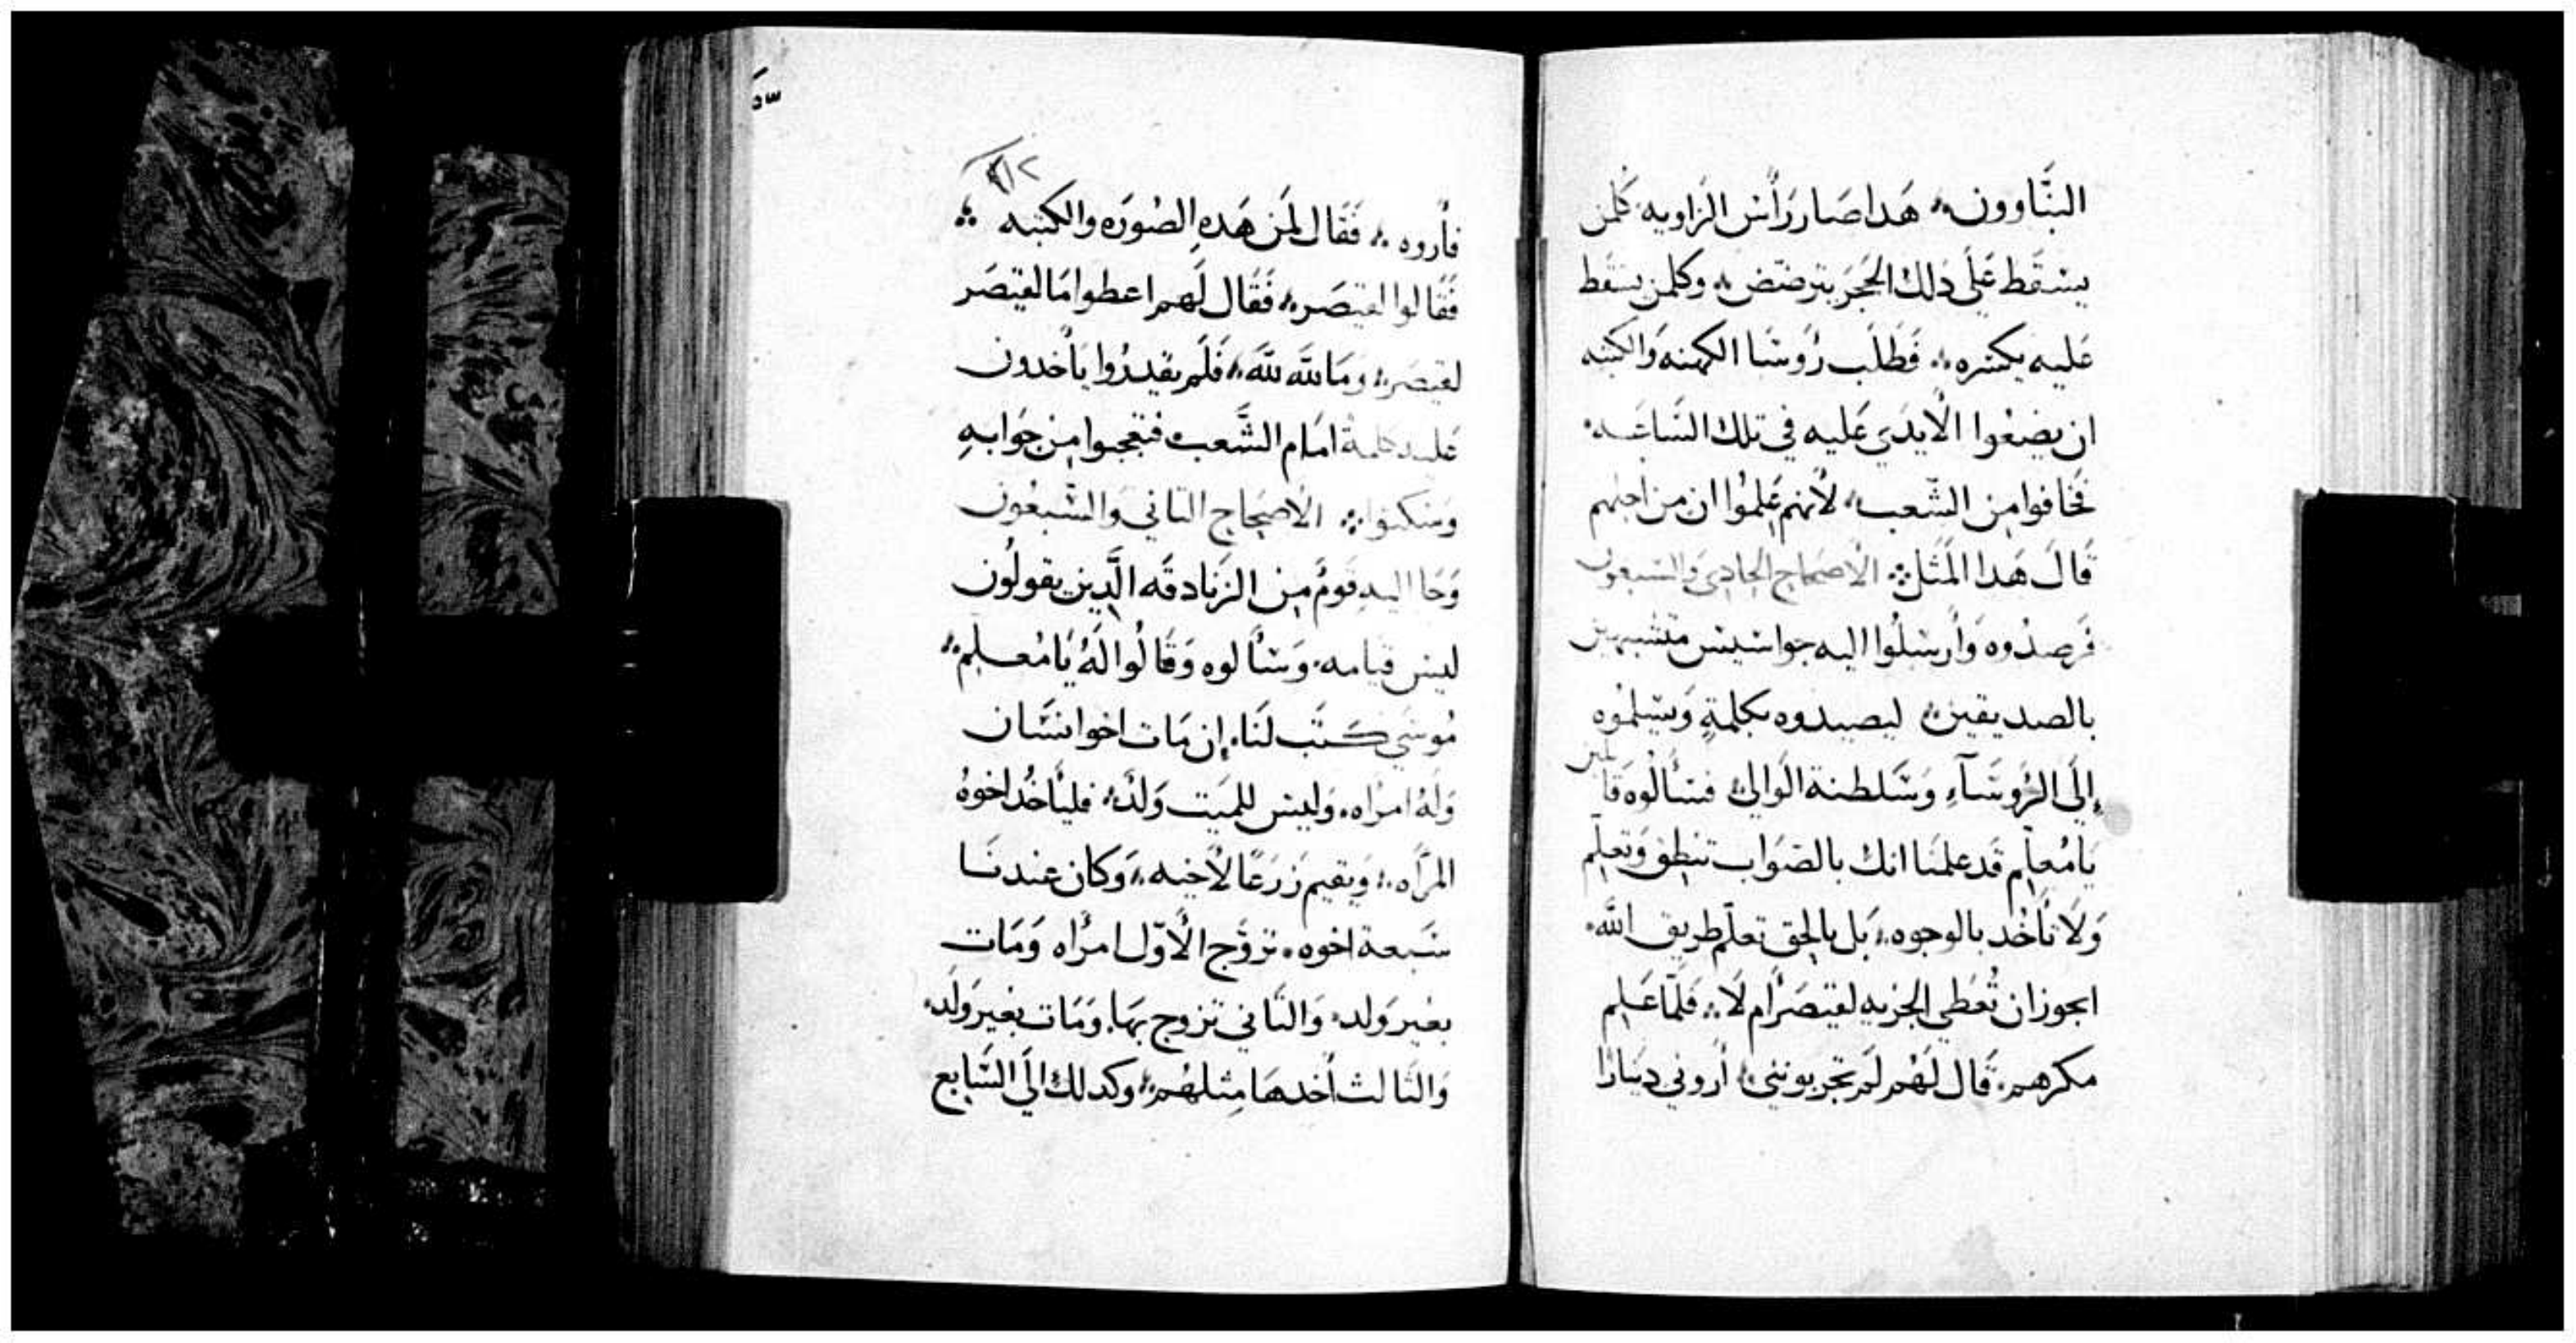 البنَّاوون هَدا صَار رَأس الزاويه فكلمن
يسقَط عَلَى دَلك الحَجَر يترضض وكلمن يسقط
عَليه يكسره فَطَلَب رُوسَا الكهنه وَالكتبه
ان يضعُوا الأيدَي عَليه في تلك السَاعَه
فخافوا من الشَعب لأنهم عَلِمُوا ان من اجلهم
قَالَ هَدا المَثَل الأصحَاح الحَادي وَالسبعون
فرصدُوه وَأرسَلُوا اليه جواسيس متشبهين
بالصديقين ليصيدوه بكلمةٍ وَيسَلمُوه
إلَى الرُوسَآءِ وَسَلطنة الوَالي فسَألُوه قا
يلين
يَامُعلِم قَد علمنا انك بالصَوَاب تنطِق وَتعَلِم
وَلَا تأخُد بالوجوه بَل بالحق تعلّم طريق الله
ايجوز ان تُعَطي الجزيه لقيصَر أم لَا فَلمّا عَلِم
مكرهم قَال لَهُم لَم تجربونني أروني دينارًا
٢١٢
فأروه فَقَال لمَن هَدهِ الصُورَه والكتبه
فَقَالوا لقيصَر فَقَال لَهم اعطوا مَا لقيصَر
لقيصَر وَمَا للَّه للَّه فَلَم يقدرُوا يَأخدون
عَليه كلمةً امَام الشَّعب فتعجبوا مِن جَوَابهِ
وَسَكتوا الأصحَاج التاني وَالسَّبعُون
وَجَا اليهِ قومٌ مِن الزنَادقَه الَّدِين يقولُون
ليس قيامه وَسَألوه وَقَالُوا لَهُ يَا مُعَلِم
مُوسَي كتَب لَنَا إن مَات اخو انسَان
وَلهُ امرَاه وَليس للمَيت وَلدٌ فليَأخُد اخوهُ
المَرأه وَيقيم زَرعًا لأخيه وَكان عندنَا
سَبعة اخوه تزوَّج الأوّل امرَأه وَمَات
بغير وَلد وَالتَاني تزوج بهَا وَمَات بغير وَلَد
وَالتَالت أخدهَا مِثلهُم وكدلك الَي السَّابع